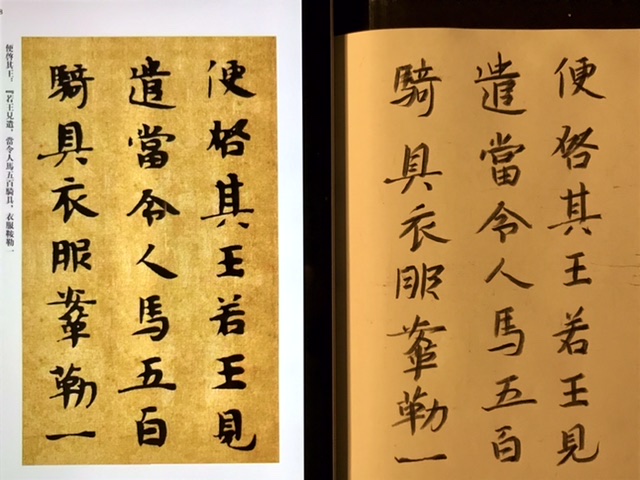 便啓其王若王見
遣當令人馬五百
騎具衣服鞌勒一
便啓其王，『若王見遣，當令人馬五百騎具，衣服鞍勒一
便啓其王若王見
遣當令人馬五百
騎具衣服鞌勒一